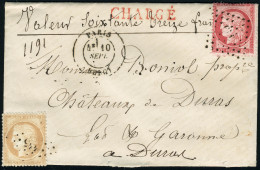 CHARGÉ
Valeur Soixante Treize fran
1191
PARIS
10
SEPT.
Monsieur Boniol propre
Châteaux de Duras
Lot & Garonne
a Duras